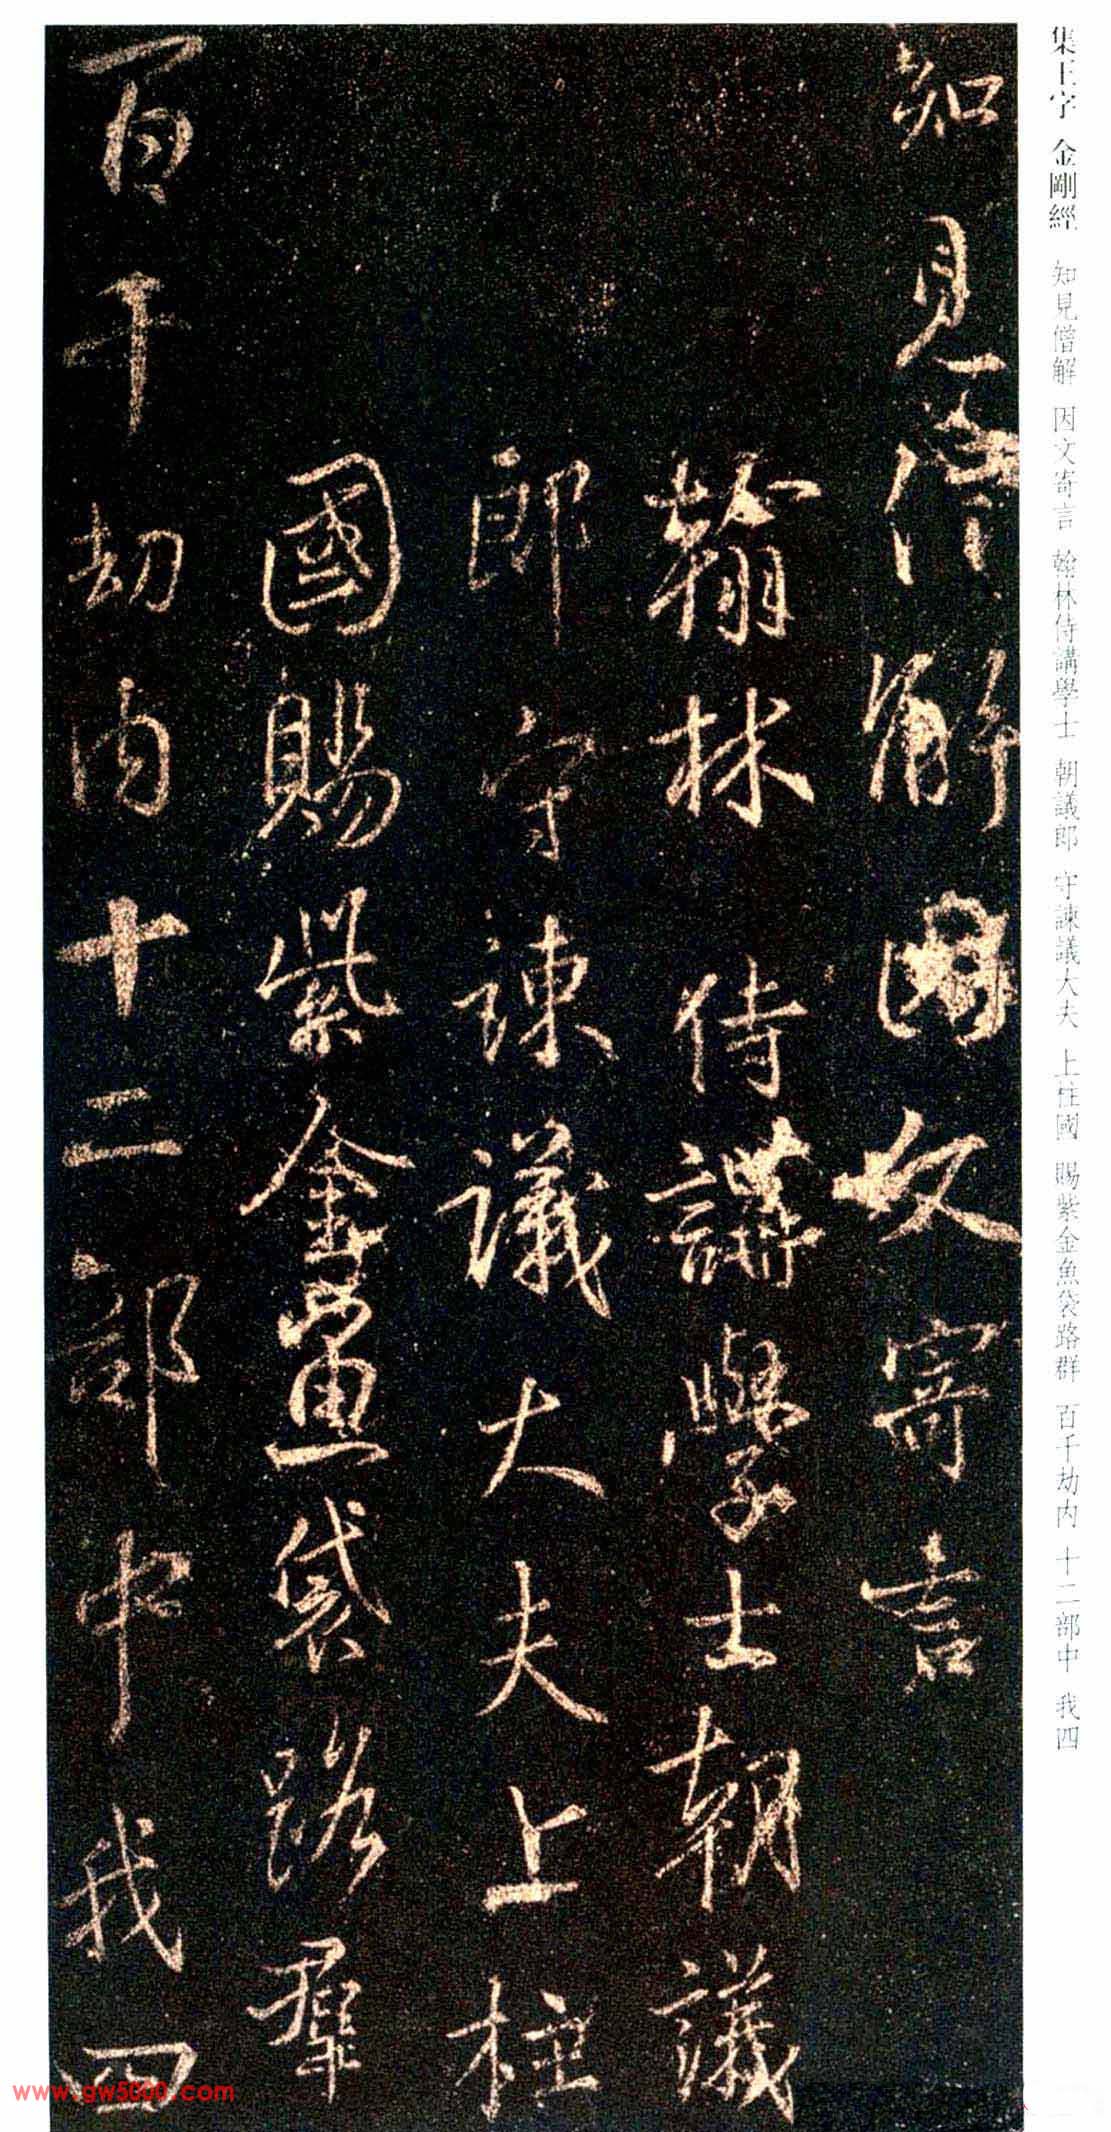 集王字 金剛經 知見僧解 因文寄言 翰林侍講學士 朝議郎 守諫議大夫 上柱國 賜紫金魚袋路群 百千劫内 十二部中 我四
知見僧解因文寄言
翰林侍講學士朝議
郎守諫議大夫上柱
國賜紫金魚袋路羣
百千劫内十二部中我四
www.gw5000.com